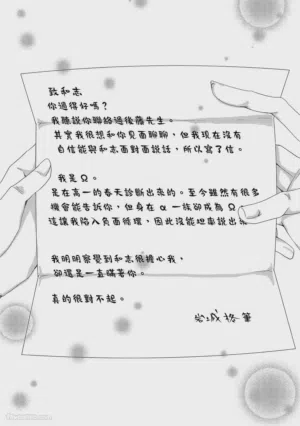 致和志
你過得好嗎？
我聽說你聯絡過後藤先生。
其實我很想和你見面聊聊，但我現在沒有
自信能與和志面對面說話，所以寫了信。
我是Ω。
是在高一的春天診斷出來的。至今雖然有很多
機會能告訴你，但身在α一族卻成為Ω
這讓我陷入負面循環，因此沒能坦率說出來
我明明察覺到和志很擔心我，
卻還是一直瞞著你。
真的很對不起。
筆